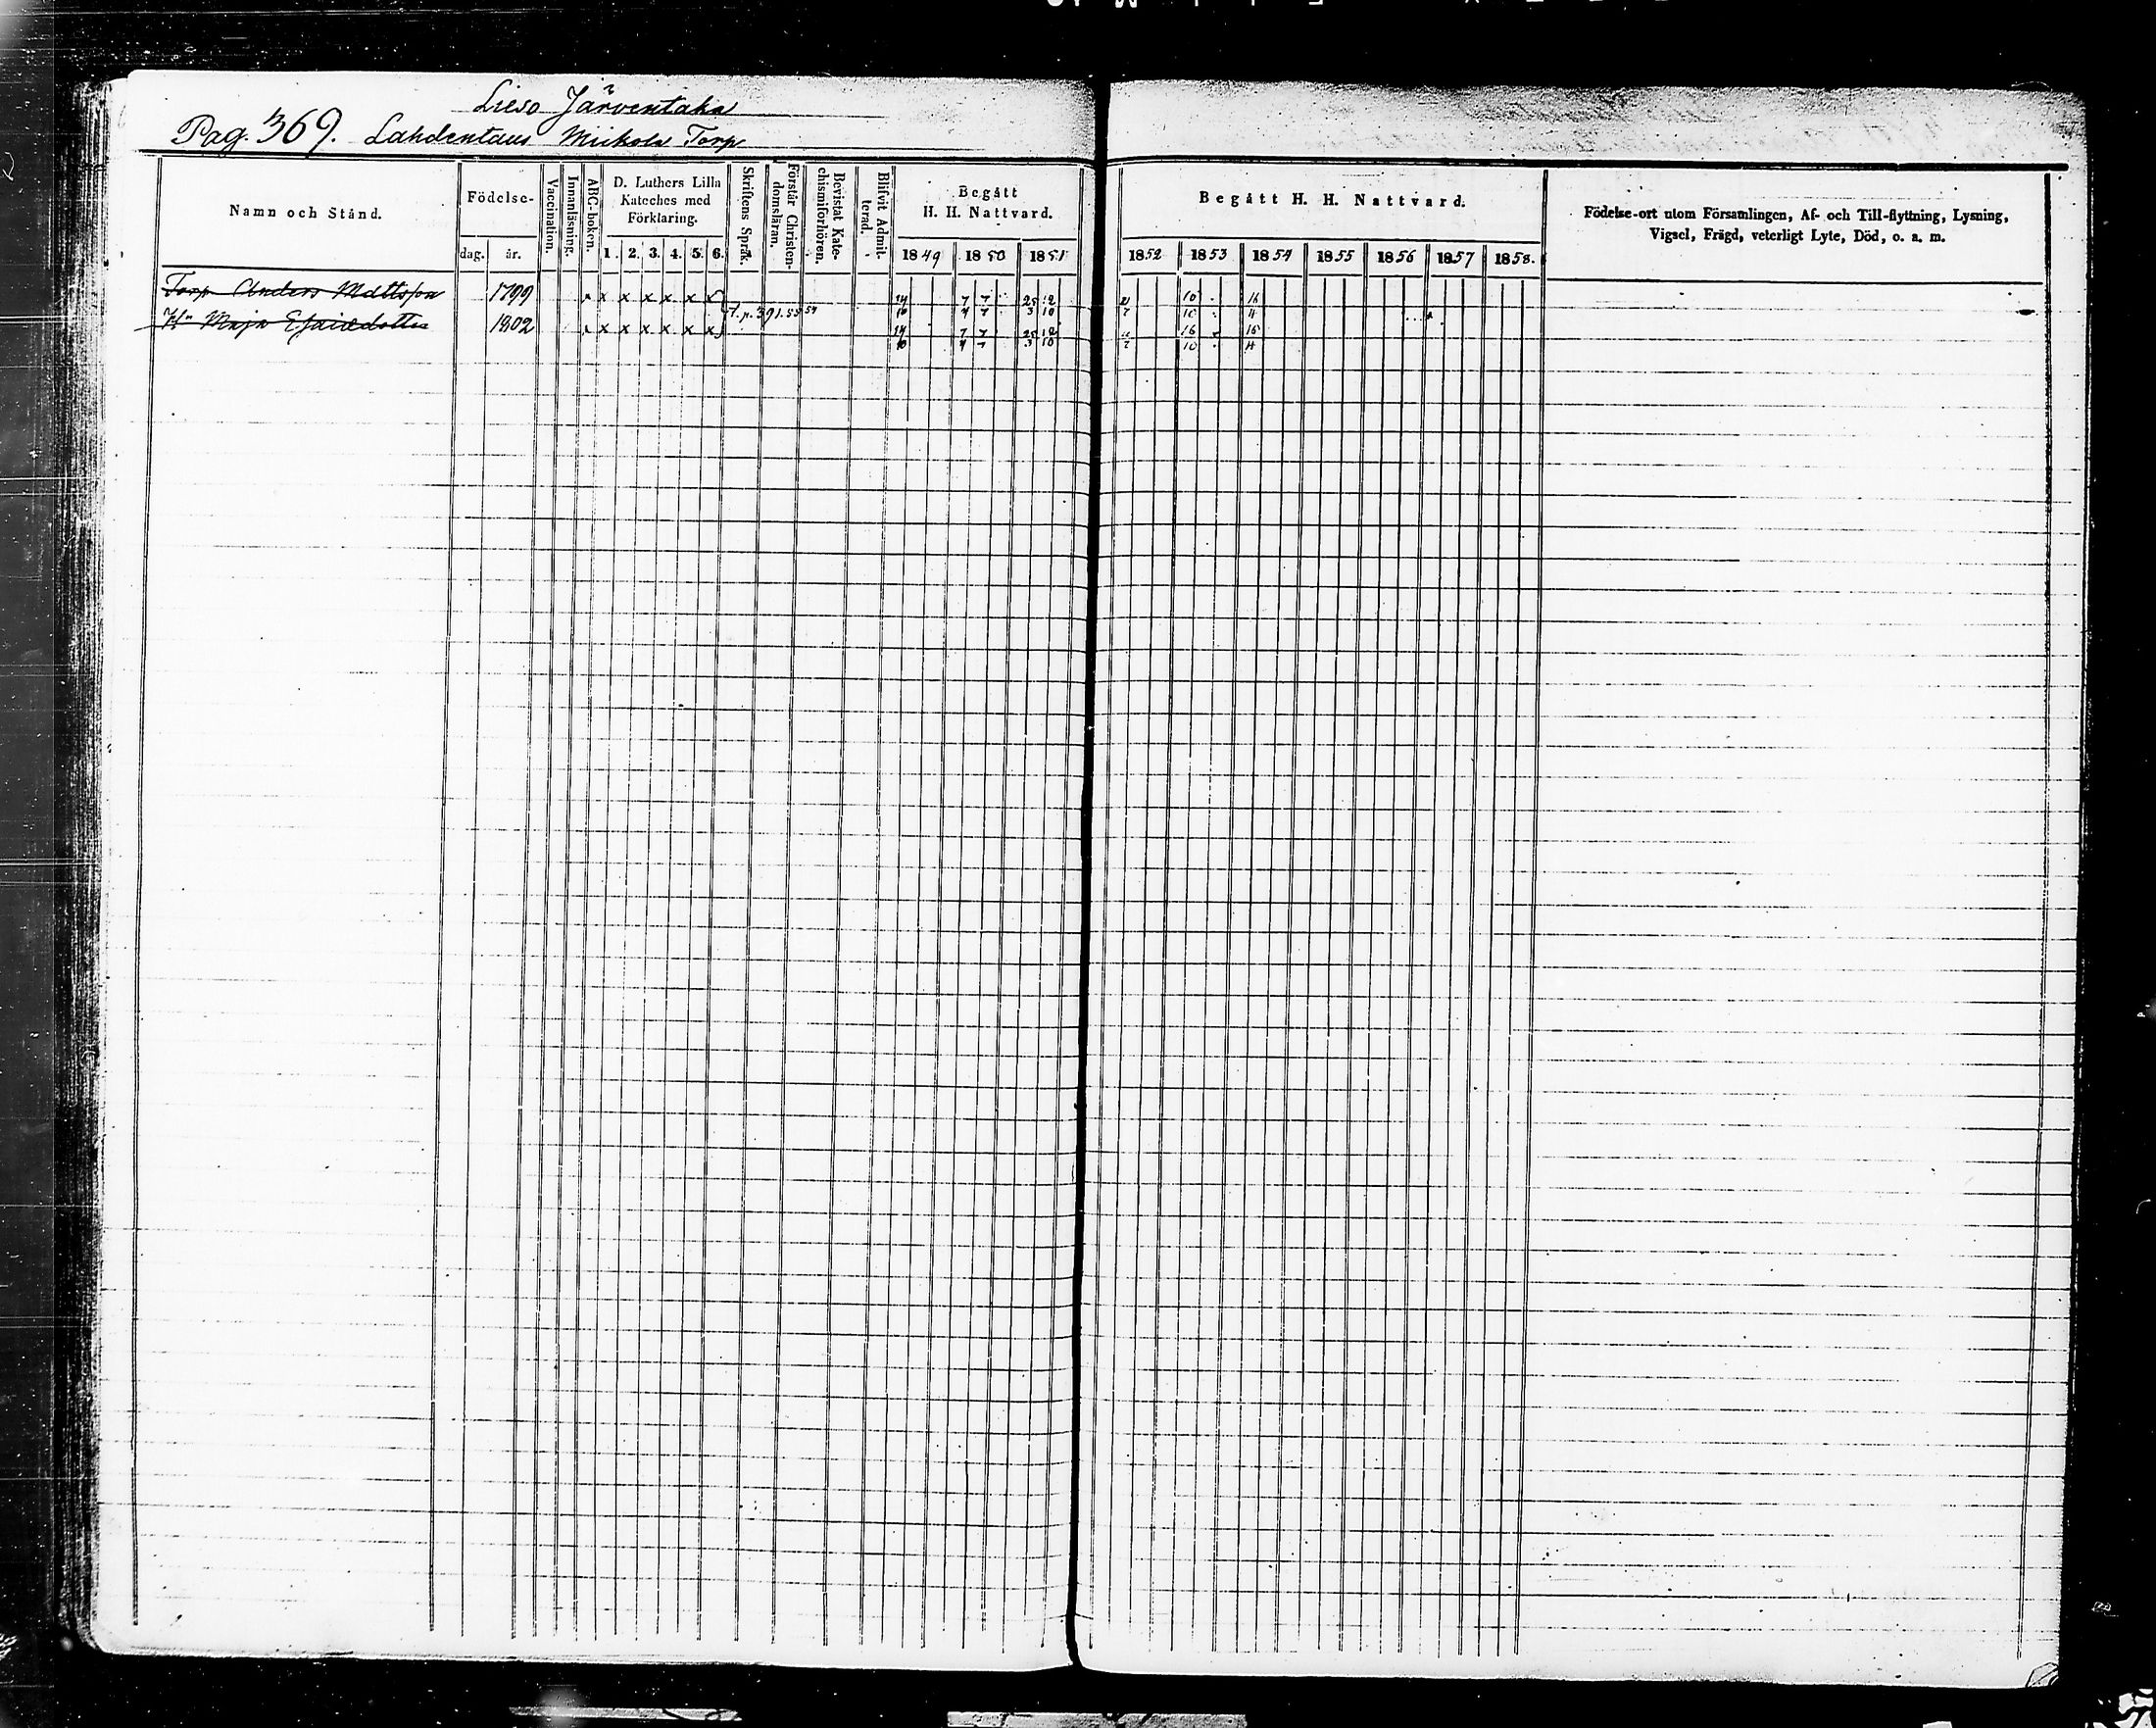 Lieso Järventaka
Pag. 369. Lahdentaus Mickola Torp
Namn och Stånd.
Födelse-
dag. år.
Vaccination.
Innanläsning.
ABC-boken.
D. Luthers Lilla
Kateches med
Förklaring.
1. 2. 3. 4. 5. 6.
Skriftens Språk.
Förstår Christen-
domsläran.
Bevistat Kate-
chismiförhören.
Blifvit Admit-
terad.
Begått
H. H. Nattvard.
1849 1850 1851
Begått H. H. Nattvard.
1852 1853 1854 1855 1856 1857 1858.
Födelse-ort utom Församlingen, Af- och Till-flyttning, Lysning,
Vigsel, Frägd, veterligt Lyte, Död, o. a. m.
Torp. Anders Mattsson 1799 x x x x x x
14 7 7 25 12 10 16
10 7 7 3 10 7 10 4
p. 391. 55
Hu Maja Esaiædotter 1802 x x x x x x
14 7 7 25 12 16 15
10 7 7 3 10 7 10 4